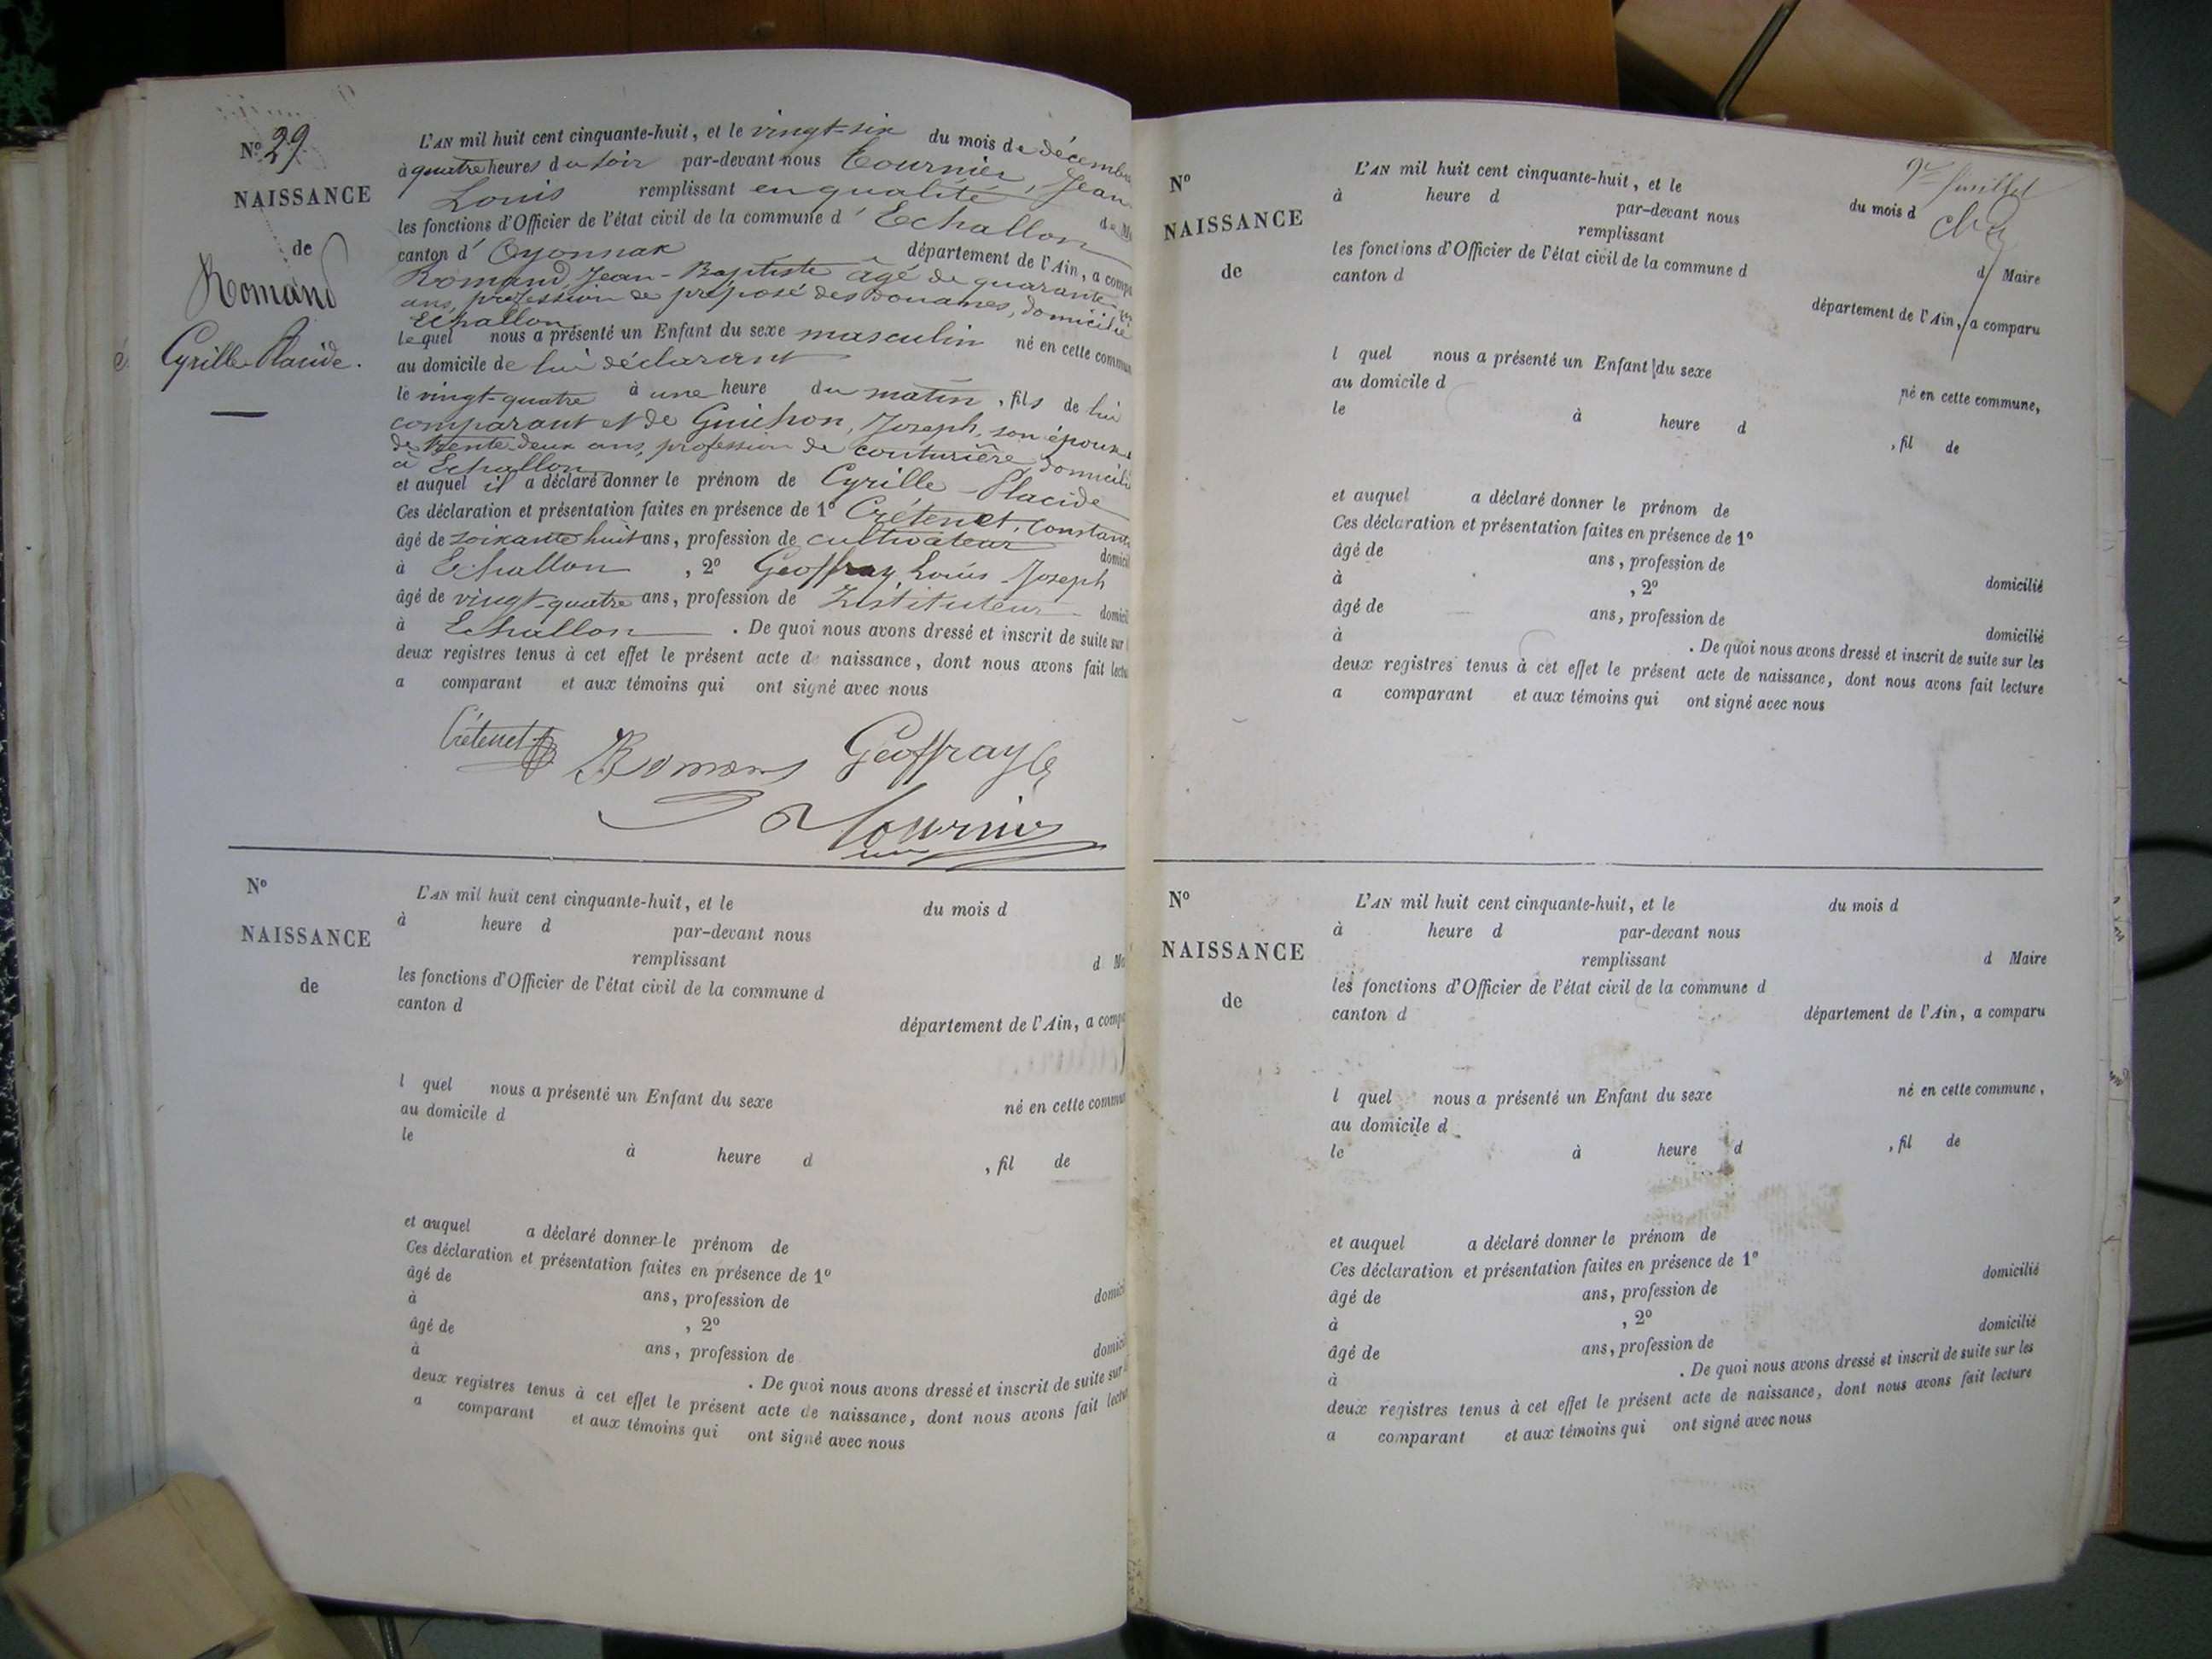 Nº 29
NAISSANCE
de
Romand
Cyrille Placide.
L'AN mil huit cent cinquante-huit, et le vingt-six du mois de décembre
à quatre heures du soir par-devant nous Tournier, Jean
Louis remplissant en qualité de M
les fonctions d'Officier de l'état civil de la commune d'Echallon
canton d'Oyonnax département de l'Ain, a comp
Romand, Jean-Baptiste âgé de quarante
ans, profession de préposé des Douanes, domicilié
Echallon
lequel nous a présenté un Enfant du sexe masculin né en cette commun
au domicile de lui déclarant
le vingt-quatre à une heure du matin, fils de lui
comparant et de Guichon, Joseph, son épouse
de trente-deux ans, profession de couturière, domicili
à Echallon
et auquel il a déclaré donner le prénom de Cyrille Placide
Ces déclaration et présentation faites en présence de 1º Crétenet, Constant
âgé de soixante huit ans, profession de cultivateur domicil
à Echallon, 2º Geoffray, Louis Joseph
âgé de vingt-quatre ans, profession de Instituteur domicil
à Echallon. De quoi nous avons dressé et inscrit de suite sur
deux registres tenus à cet effet le présent acte de naissance, dont nous avons fait lectu
a comparant et aux témoins qui ont signé avec nous
Crétenet Romand Geoffray
Tournier
Nº
NAISSANCE
de
L'AN mil huit cent cinquante-huit, et le du mois d
à heure d par-devant nous
remplissant d Ma
les fonctions d'Officier de l'état civil de la commune d
canton d département de l'Ain, a comp
l quel nous a présenté un Enfant du sexe né en cette commun
au domicile d
le à heure d , fil de
et auquel a déclaré donner le prénom de
Ces déclaration et présentation faites en présence de 1º
âgé de ans, profession de domici
à , 2º
âgé de ans, profession de domici
à . De quoi nous avons dressé et inscrit de suite sur
deux registres tenus à cet effet le présent acte de naissance, dont nous avons fait lectu
a comparant et aux témoins qui ont signé avec nous
9e feuillet
Nº
NAISSANCE
de
L'AN mil huit cent cinquante-huit, et le du mois d
à heure d par-devant nous
remplissant d Maire
les fonctions d'Officier de l'état civil de la commune d
canton d département de l'Ain, a comparu
l quel nous a présenté un Enfant du sexe né en cette commune,
au domicile d
le à heure d , fil de
et auquel a déclaré donner le prénom de
Ces déclaration et présentation faites en présence de 1º
âgé de ans, profession de domicilié
à , 2º
âgé de ans, profession de domicilié
à . De quoi nous avons dressé et inscrit de suite sur les
deux registres tenus à cet effet le présent acte de naissance, dont nous avons fait lecture
a comparant et aux témoins qui ont signé avec nous
Nº
NAISSANCE
de
L'AN mil huit cent cinquante-huit, et le du mois d
à heure d par-devant nous
remplissant d Maire
les fonctions d'Officier de l'état civil de la commune d
canton d département de l'Ain, a comparu
l quel nous a présenté un Enfant du sexe né en cette commune,
au domicile d
le à heure d , fil de
et auquel a déclaré donner le prénom de
Ces déclaration et présentation faites en présence de 1º
âgé de ans, profession de domicilié
à , 2º
âgé de ans, profession de domicilié
à . De quoi nous avons dressé et inscrit de suite sur les
deux registres tenus à cet effet le présent acte de naissance, dont nous avons fait lecture
a comparant et aux témoins qui ont signé avec nous